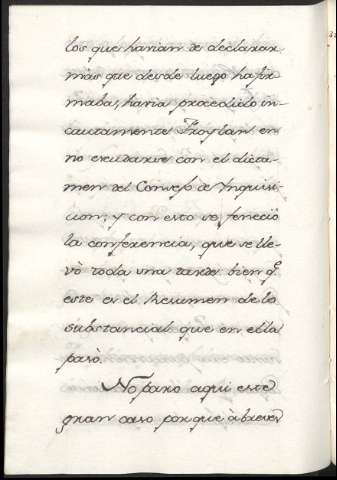 los que harian de declarar
mas que desde luego hafir
maba, havia procedido in-
cautamente Froylan en
no escudarse con el dicta-
men del Consejo de Inquisi-
cion; y con esto se feneciò
la conferencia, que se lle-
vò toda una tarde, bien q.e
este es el Resumen de lo
substancial que en ella
pasò.
No paro aqui este
gran caso porque à breves